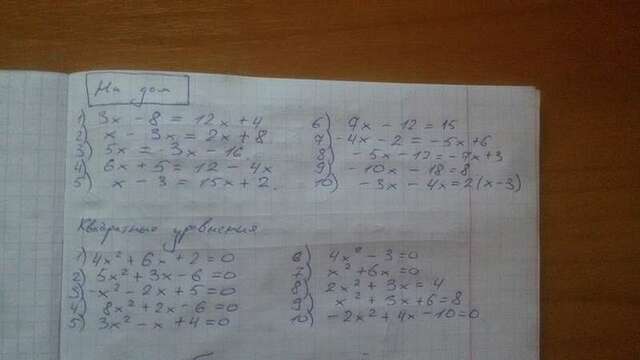 На дом
1) 3x - 8 = 12x + 4
2) x - 3x = 2x + 8
3) 5x = 3x - 16
4) 6x + 5 = 12 - 4x
5) x - 3 = 15x + 2.
6) 9x - 12 = 15
7) -4x - 2 = -5x + 6
8) -5x - 12 = -7x + 3
9) -10x - 18 = 8
10) -3x - 4x = 2(x - 3)
Квадратные уравнения
1) 4x² + 6x + 2 = 0
2) 5x² + 3x - 6 = 0
3) -x² - 2x + 5 = 0
4) 8x² + 2x - 6 = 0
5) 3x² - x + 4 = 0
6) 4x² - 3 = 0
7) x² + 6x = 0
8) 2x² + 3x = 4
9) x² + 3x + 6 = 8
10) -2x² + 4x - 10 = 0